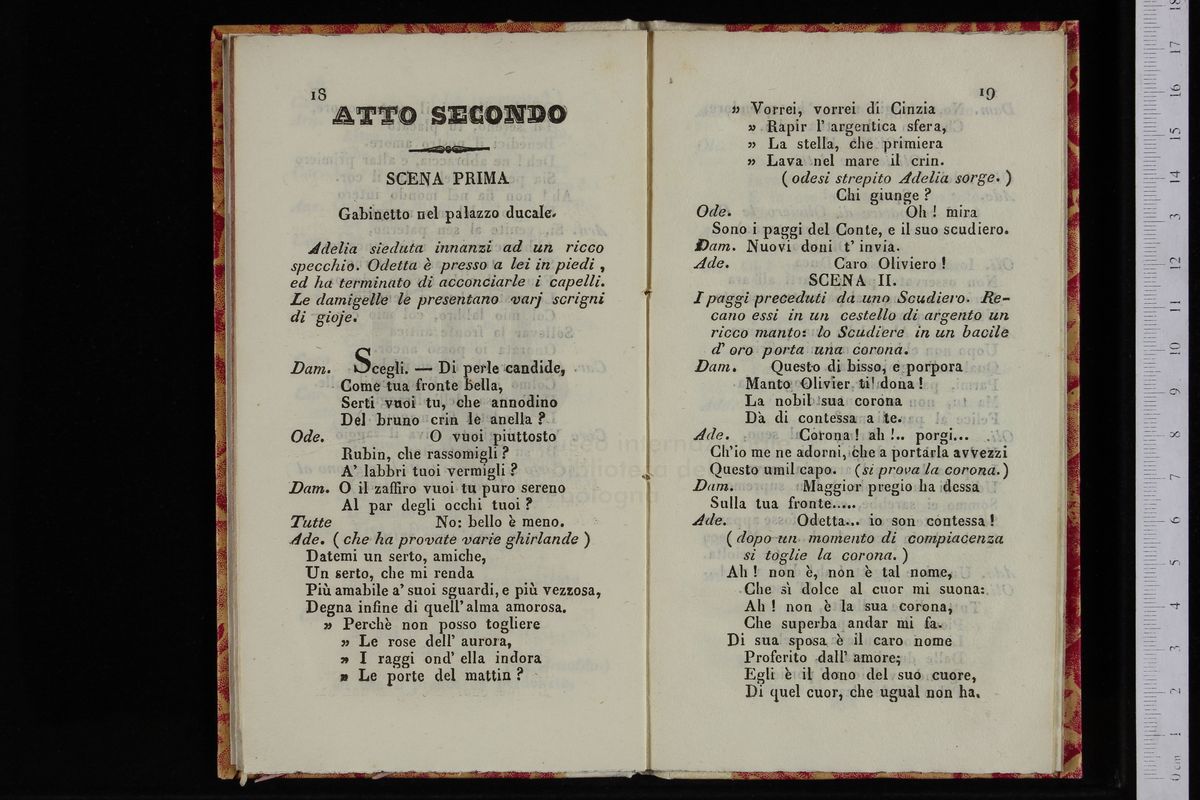 18
ATTO SECONDO
SCENA PRIMA
Gabinetto nel palazzo ducale.
Adelia sieduta innanzi ad un ricco
specchio. Odetta è presso a lei in piedi ,
ed ha terminato di acconciarle i capelli.
Le damigelle le presentano varj scrigni
di gioje.
Dam. Scegli. — Di perle candide,
Come tua fronte bella,
Serti vuoi tu, che annodino
Del bruno crin le anella ?
Ode. O vuoi piuttosto
Rubin, che rassomigli ?
A' labbri tuoi vermigli ?
Dam. O il zaffiro vuoi tu puro sereno
Al par degli occhi tuoi ?
Tutte No: bello è meno.
Ade. ( che ha provate varie ghirlande )
Datemi un serto, amiche,
Un serto, che mi renda
Più amabile a' suoi sguardi, e più vezzosa,
Degna infine di quell' alma amorosa.
» Perchè non posso togliere
» Le rose dell' aurora,
» I raggi ond' ella indora
» Le porte del mattin ?
19
» Vorrei, vorrei di Cinzia
» Rapir l' argentica sfera,
» La stella, che primiera
» Lava nel mare il crin.
( odesi strepito Adelia sorge. )
Chi giunge ?
Ode. Oh ! mira
Sono i paggi del Conte, e il suo scudiero.
Dam. Nuovi doni t' invia.
Ade. Caro Oliviero !
SCENA II.
I paggi preceduti da uno Scudiero. Re-
cano essi in un cestello di argento un
ricco manto: lo Scudiere in un bacile
d' oro porta una corona.
Dam. Questo di bisso, e porpora
Manto Olivier ti dona !
La nobil sua corona
Dà di contessa a te.
Ade. Corona ! ah !.. porgi...
Ch'io me ne adorni, che a portarla avvezzi
Questo umil capo. (si prova la corona.)
Dam. Maggior pregio ha dessa
Sulla tua fronte.....
Ade. Odetta... io son contessa !
( dopo un momento di compiacenza
si toglie la corona. )
Ah ! non è, non è tal nome,
Che sì dolce al cuor mi suona:
Ah ! non è la sua corona,
Che superba andar mi fa.
Di sua sposa è il caro nome
Proferito dall' amore;
Egli è il dono del suo cuore,
Di quel cuor, che ugual non ha.